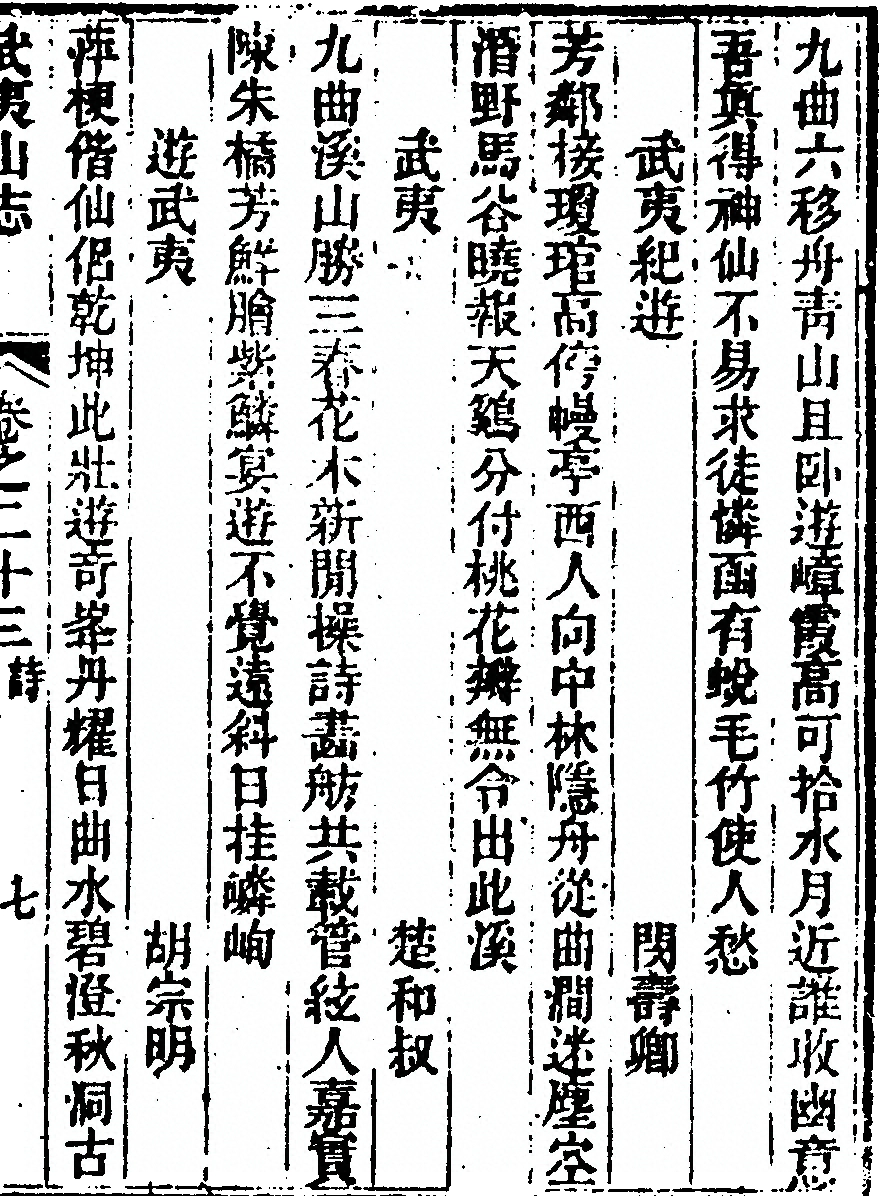 九曲六移舟青山且卧遊嶂霞高可拾水月近誰收幽意
吾真得神仙不易求徒憐函有蛻毛竹使人愁
武夷紀遊 閔壽卿
芳鄰接瓊琯高倚幔亭西人向中林隱舟從曲澗迷塵空
潛野馬谷曉報天鷄分付桃花瓣無令出此溪
武夷 楚和叔
九曲溪山勝三春花木新閒操詩畫舫共載管絃人嘉賓
陳朱橘芳鮮膾紫鱗宴遊不覺遠斜日挂嶙峋
遊武夷 胡宗明
萍梗偕仙侶乾坤此壯遊奇峯丹耀日曲水碧澄秋洞古
武夷山志 卷之二十三 詩 七